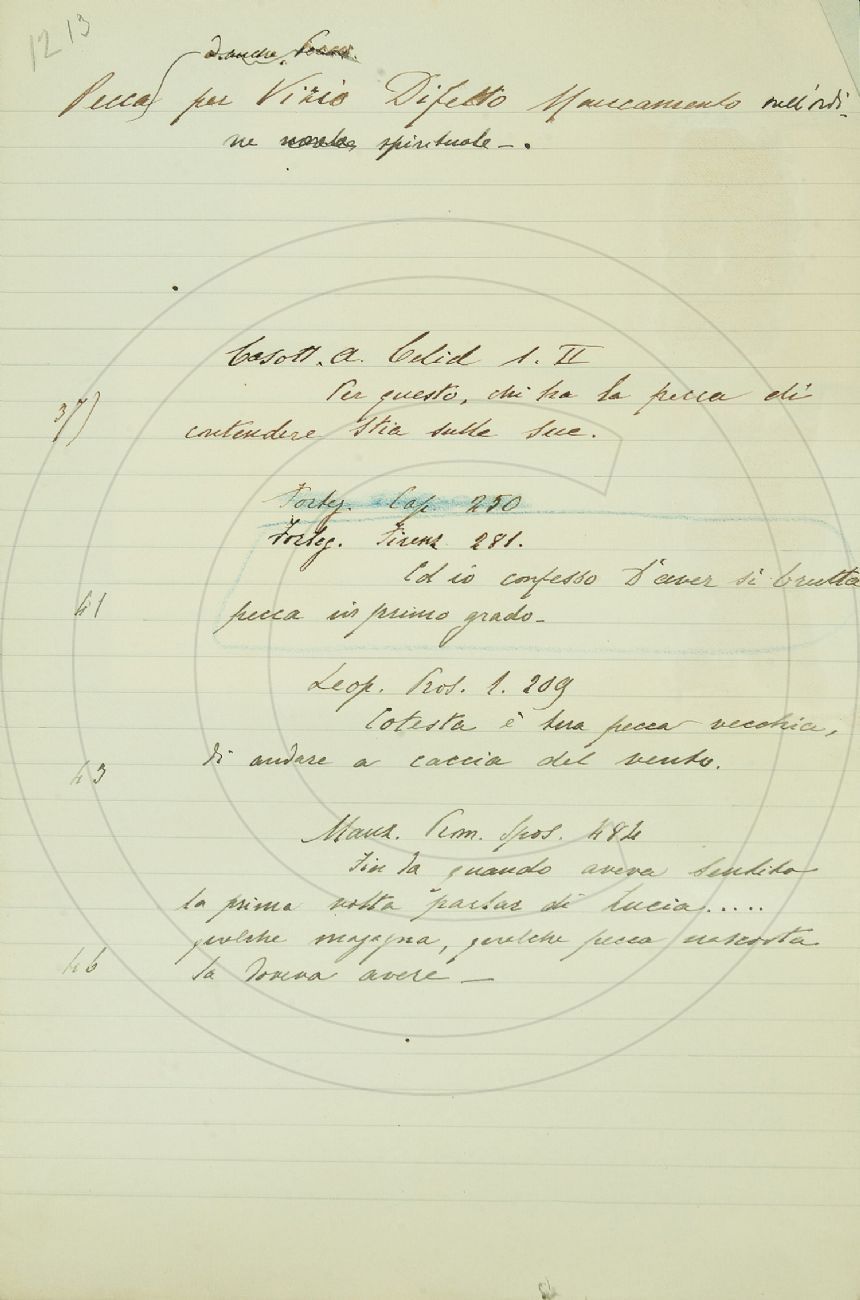 1213
Pecca per Vizio Difetto Mancamento nell'ordi-
ne spirituale -.
Casott. A. Celid 1. II
Per questo, chi ha la pecca di
37) contendere stia sulle sue.
Forteg. Cap. 250
Forteg. 281.
Ed io confesso D'aver sì brutta
41 pecca in primo grado-
Leop. Pros. 1. 209
Cotesta è tua pecca vecchia,
43 di andare a caccia del vento.
Manz. Prom. Spos. 484
Fin da quando aveva sentito
la prima volta parlar di Lucia.....
qualche magagna, qualche pecca nascosta
46 la doveva avere -